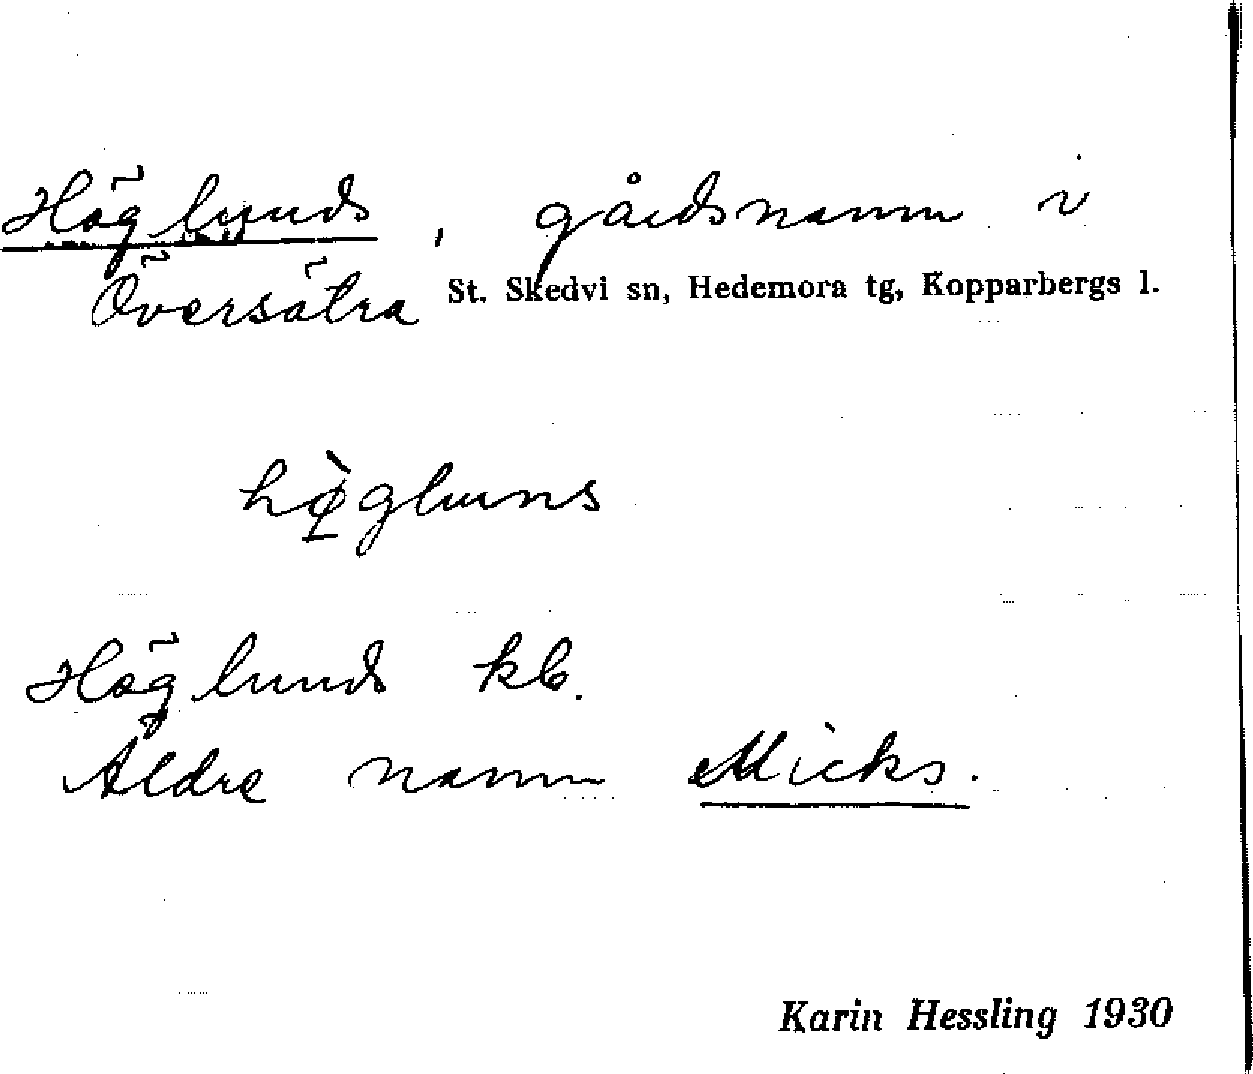 Höglunds, gårdsnamn i
Översätra St. Skedvi sn, Hedemora tg, Kopparbergs l.
hø̀gluns
Höglunds kb.
Äldre namn Micks.
Karin Hessling 1930